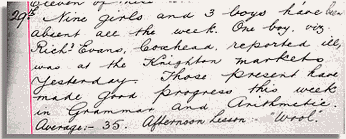 29th Nine girls and 3 boys have been
absent all the week. One boy, viz,
Richd Evans, Coxhead, reported ill,
was at the Knighton markets
Yesterday. Those present have
made good progress this week
in Grammar and Arithmetic.
Average:- 35. Afternoon Lesson "Wool".